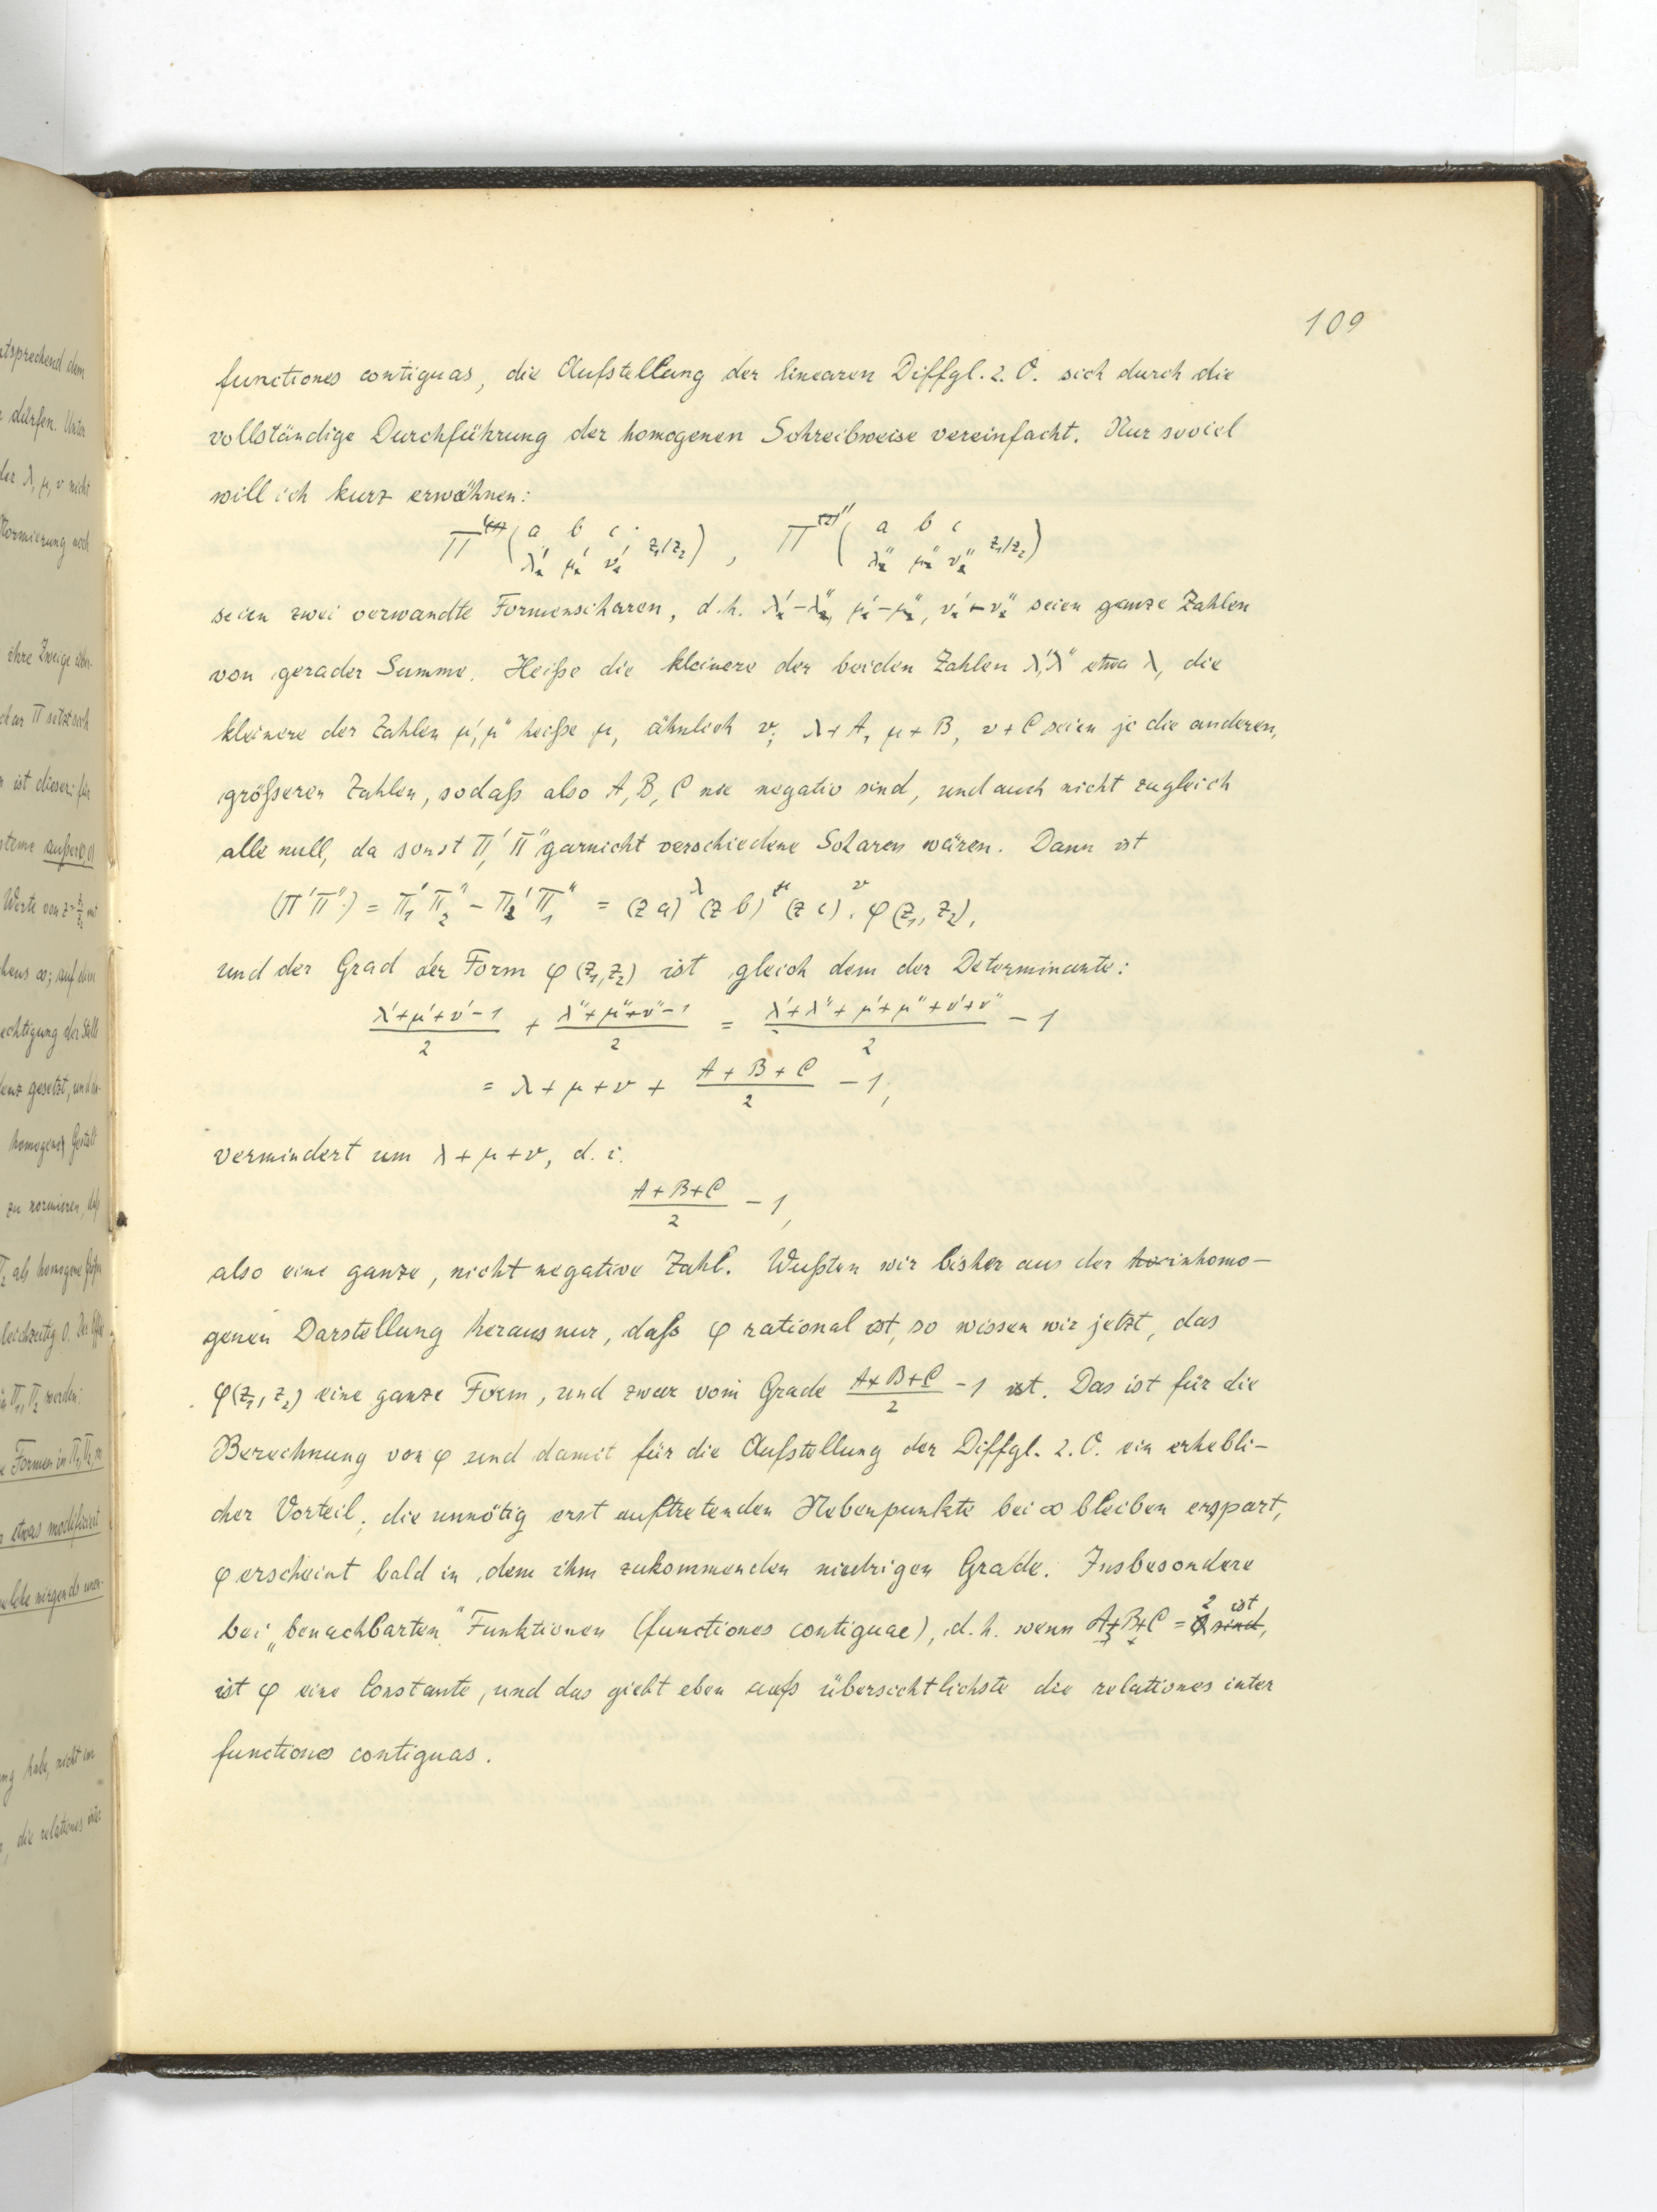 109
functiones contiguas, die Aufstellung der linearen Diffgl. 2. O. sich durch die
vollständige Durchführung der homogenen Schreibweise vereinfacht. Nur soviel
will ich kurz erwähnen:
Π' ( a b c / λ' μ' ν' z₁/z₂ ) , Π'' ( a b c / λ'' μ'' ν'' z₁/z₂ )
seien zwei verwandte Formenscharen, d.h. λ'-λ'', μ'-μ'', ν'-ν'' seien ganze Zahlen
von gerader Summe. Heiße die kleinere der beiden Zahlen λ', λ'' etwa λ, die
kleinere der Zahlen μ', μ'' heiße μ, ähnlich ν; λ+A, μ+B, ν+C seien je die anderen,
größeren Zahlen, sodaß also A, B, C nie negativ sind, und auch nicht zugleich
alle null, da sonst Π', Π'' garnicht verschiedene Scharen wären. Dann ist
(Π'Π'') = Π₁'Π₂'' - Π₂'Π₁'' = (z a)^λ (z b)^μ (z c)^ν . φ(z₁, z₂),
und der Grad der Form φ(z₁,z₂) ist gleich dem der Determinante:
(λ'+μ'+ν'-1)/2 + (λ''+μ''+ν''-1)/2 = (λ'+λ''+μ'+μ''+ν'+ν'')/2 - 1
= λ+μ+ν+ (A+B+C)/2 - 1,
vermindert um λ+μ+ν, d. i.
(A+B+C)/2 - 1,
also eine ganze, nicht negative Zahl. Wußten wir bisher aus der inhomo-
genen Darstellung heraus nur, daß φ rational ist, so wissen wir jetzt, das
φ(z₁, z₂) eine ganze Form, und zwar vom Grade (A+B+C)/2 - 1 ist. Das ist für die
Berechnung von φ und damit für die Aufstellung der Diffgl. 2. O. ein erhebli-
cher Vorteil; die unnötig erst auftretenden Nebenpunkte bei ∞ bleiben erspart,
φ erscheint bald in dem ihm zukommenden niedrigen Grade. Insbesondere
bei „benachbarten" Funktionen (functiones contiguae), d.h. wenn A+B+C = 2 ist,
ist φ eine Constante, und das giebt eben aufs übersichtlichste die relationes inter
functiones contiguas.